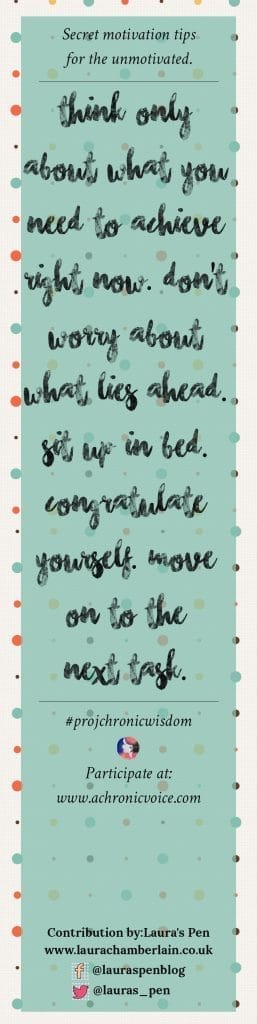 Secret motivation tips
for the unmotivated.
think only
about what you
need to achieve
right now. don't
worry about
what lies ahead.
sit up in bed.
congratulate
yourself. move
on to the
next task.
#projchronicwisdom
Participate at:
www.achronicvoice.com
Contribution by:Laura's Pen
www.laurachamberlain.co.uk
@lauraspenblog
@lauras_pen